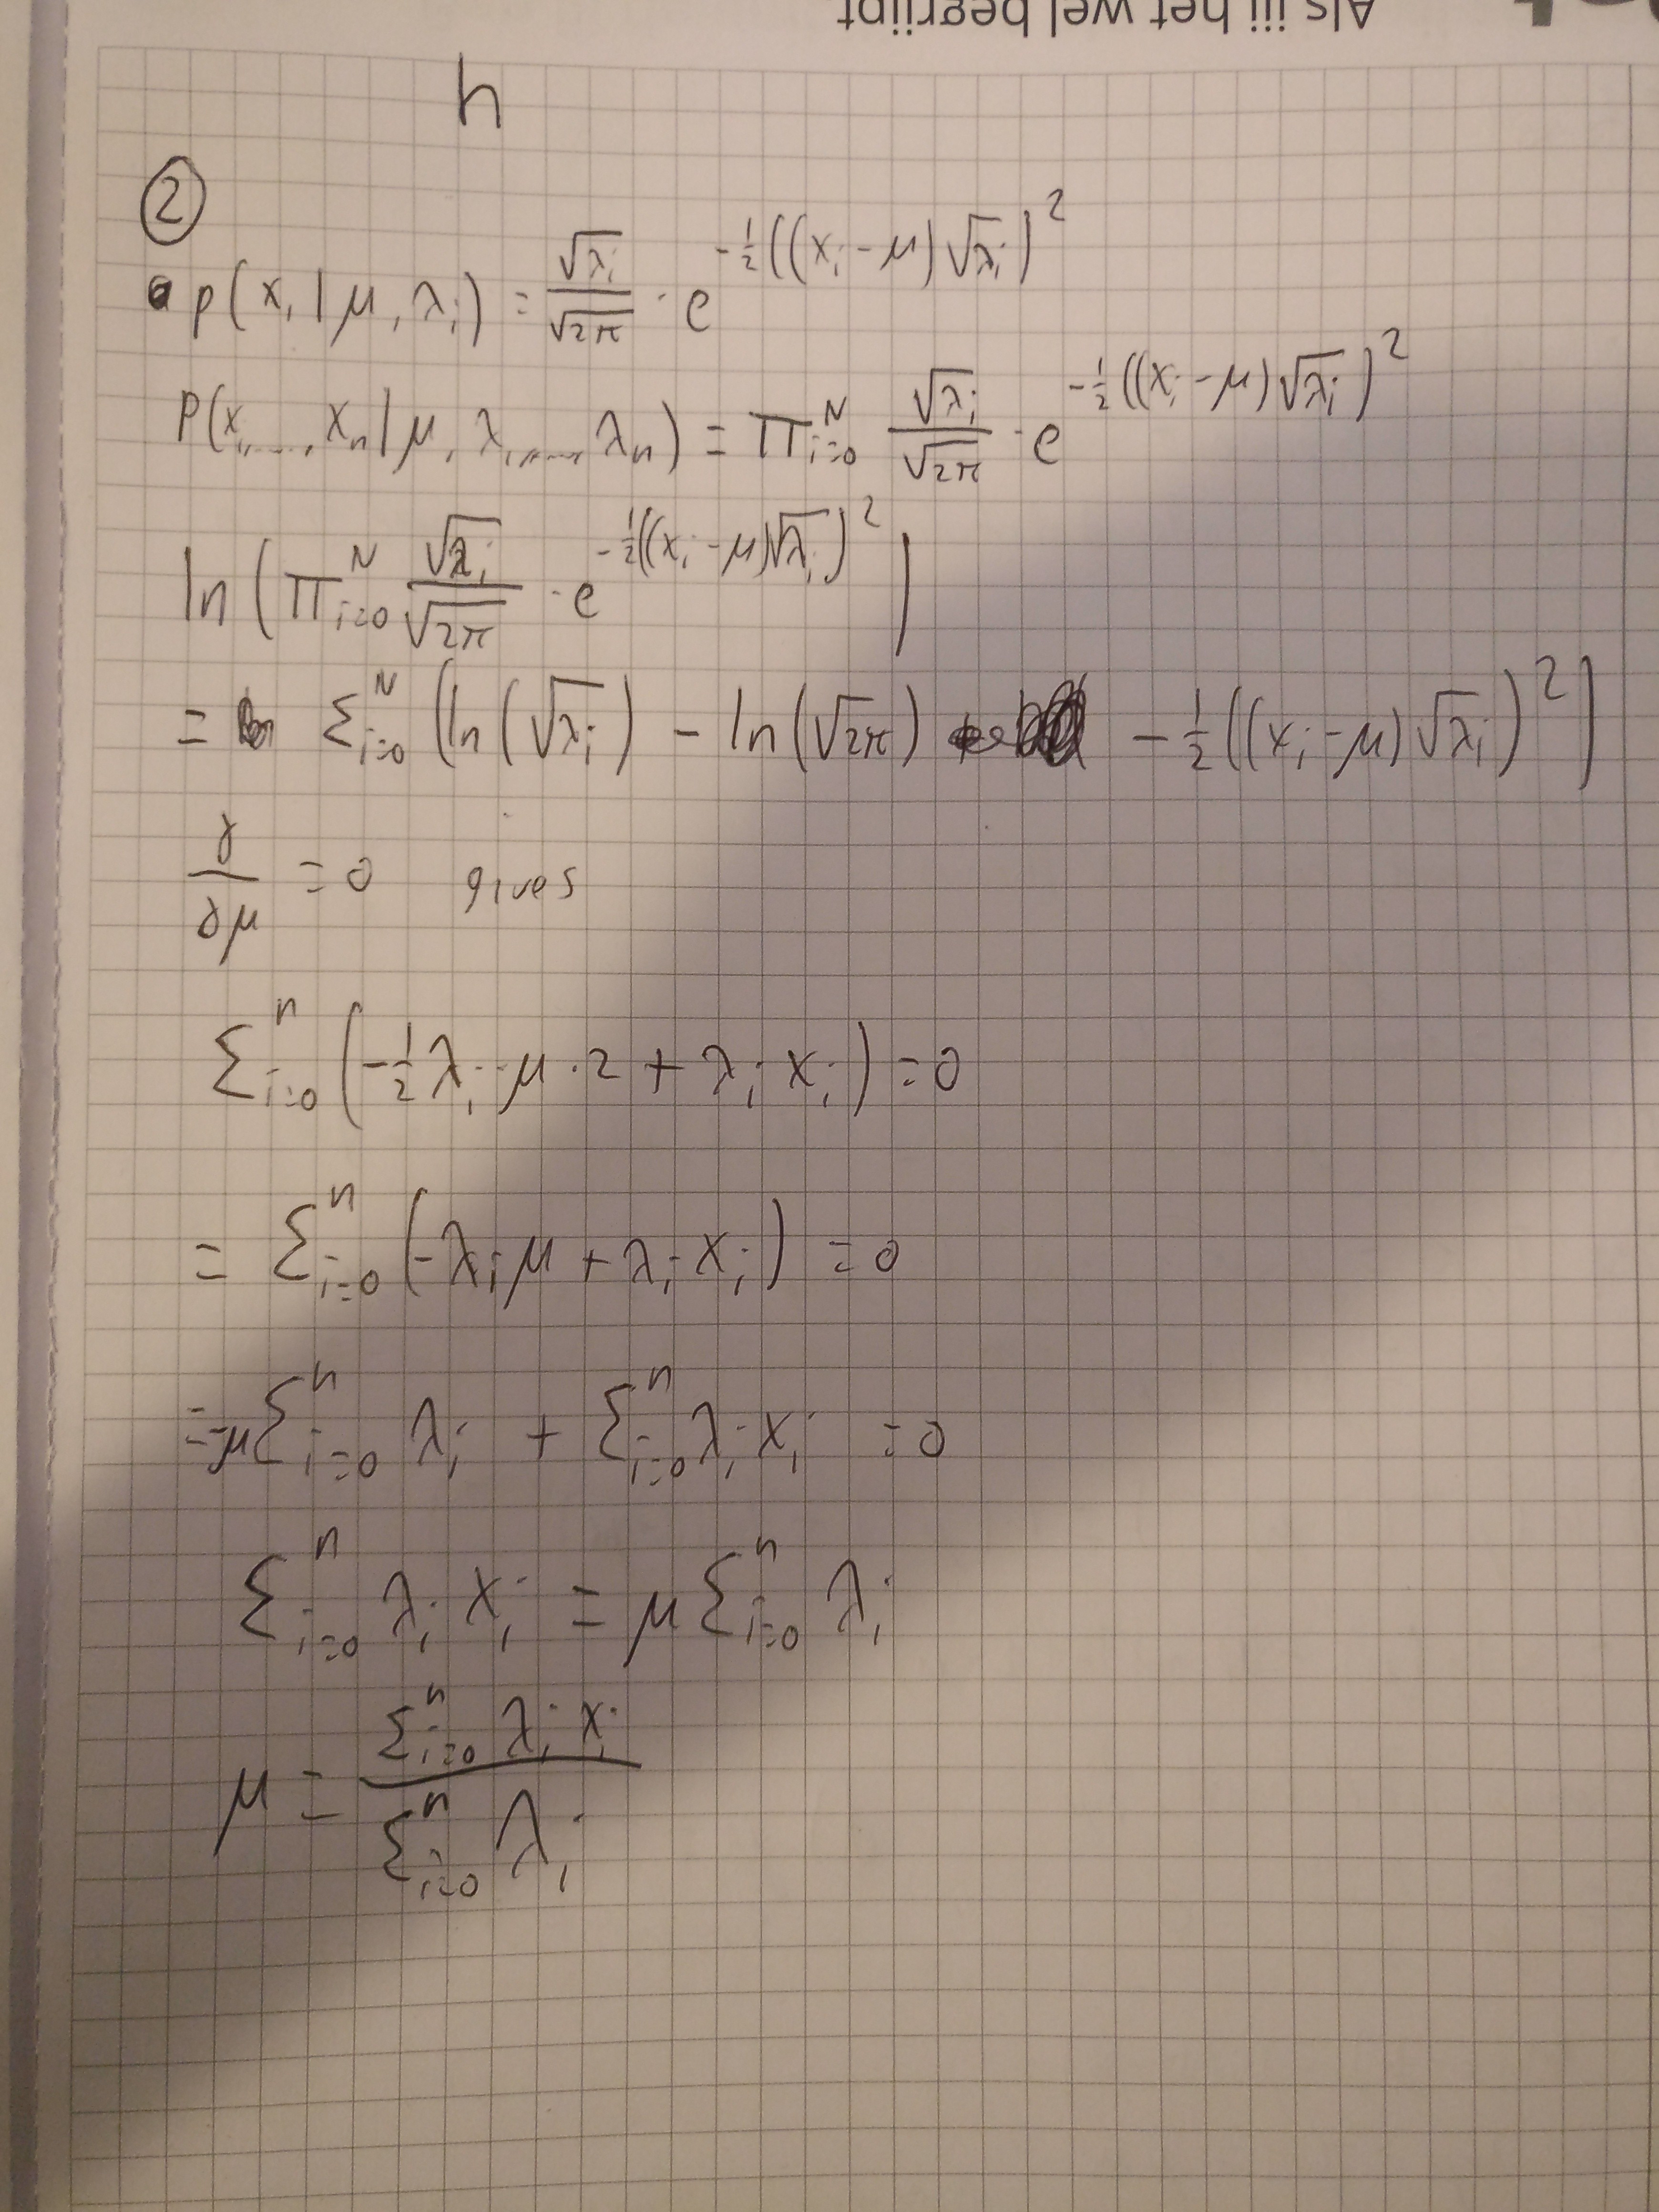 Als jij het wel begrijpt.
h
②
p(x_i | μ, λ_i) = √λ_i / √2π · e^{-½((x_i - μ)√λ_i)^2}
P(x_1,..., x_n | μ, λ_1,..., λ_n) = Π_{i=0}^N √λ_i / √2π · e^{-½((x_i - μ)√λ_i)^2}
ln(Π_{i=0}^N √λ_i / √2π · e^{-½((x_i - μ)√λ_i)^2})
= Σ_{i=0}^N (ln(√λ_i) - ln(√2π) - ½((x_i - μ)√λ_i)^2)
∂/∂μ = 0 gives
Σ_{i=0}^n (-½ λ_i · μ · 2 + λ_i x_i) = 0
= Σ_{i=0}^n (-λ_i μ + λ_i x_i) = 0
= -μ Σ_{i=0}^n λ_i + Σ_{i=0}^n λ_i x_i = 0
Σ_{i=0}^n λ_i x_i = μ Σ_{i=0}^n λ_i
μ = Σ_{i=0}^n λ_i x_i / Σ_{i=0}^n λ_i